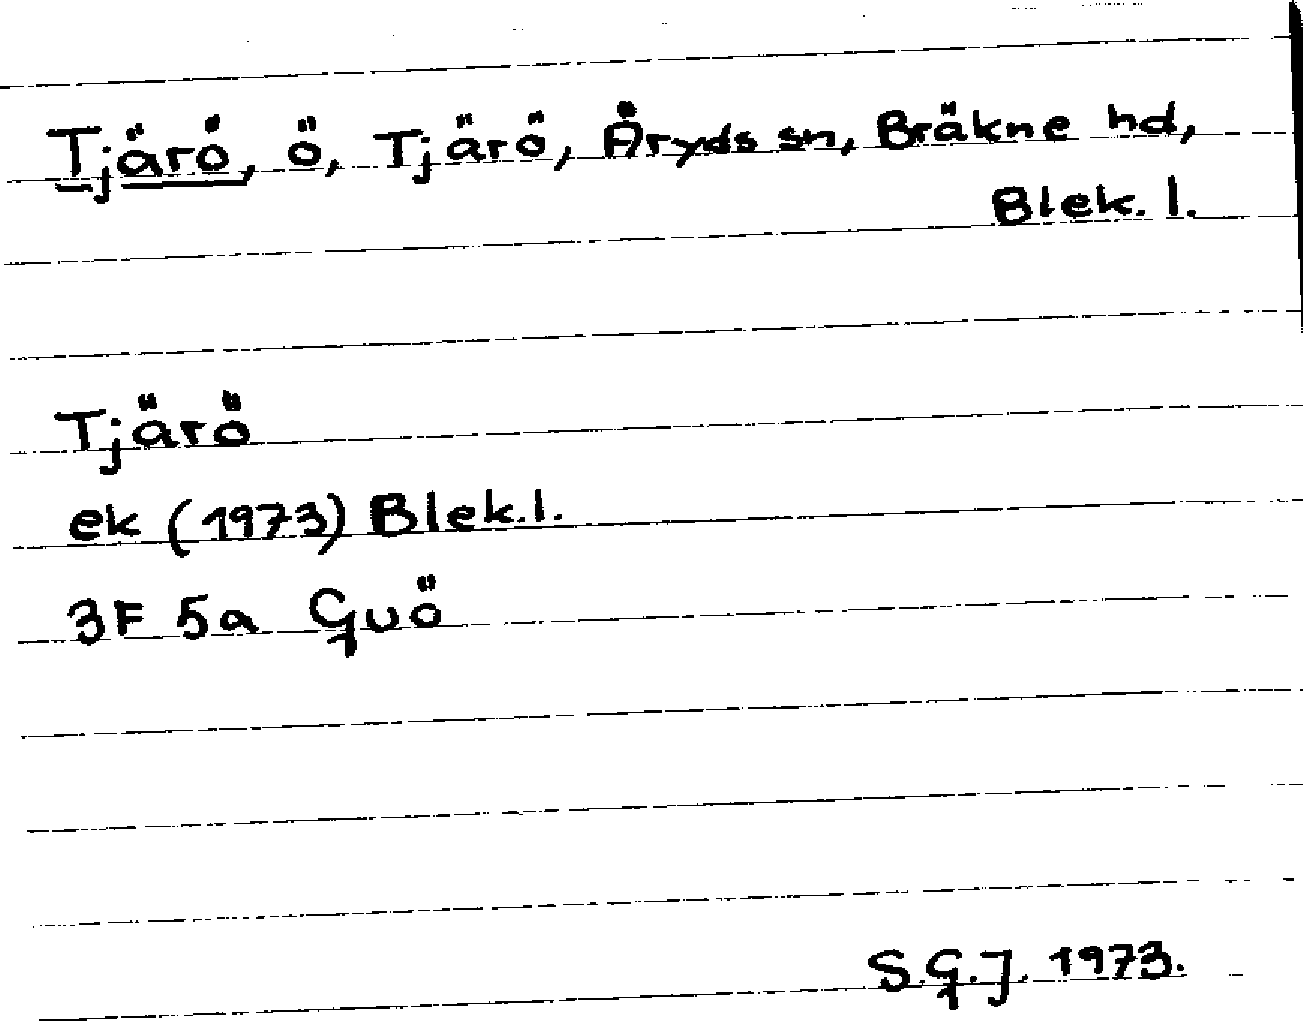 Tjärö, ö, Tjärö, Åryds sn, Bräkne hd,
Blek. l.
Tjärö
ek (1973) Blek.l.
3F 5a Guö
S.G.J. 1973.